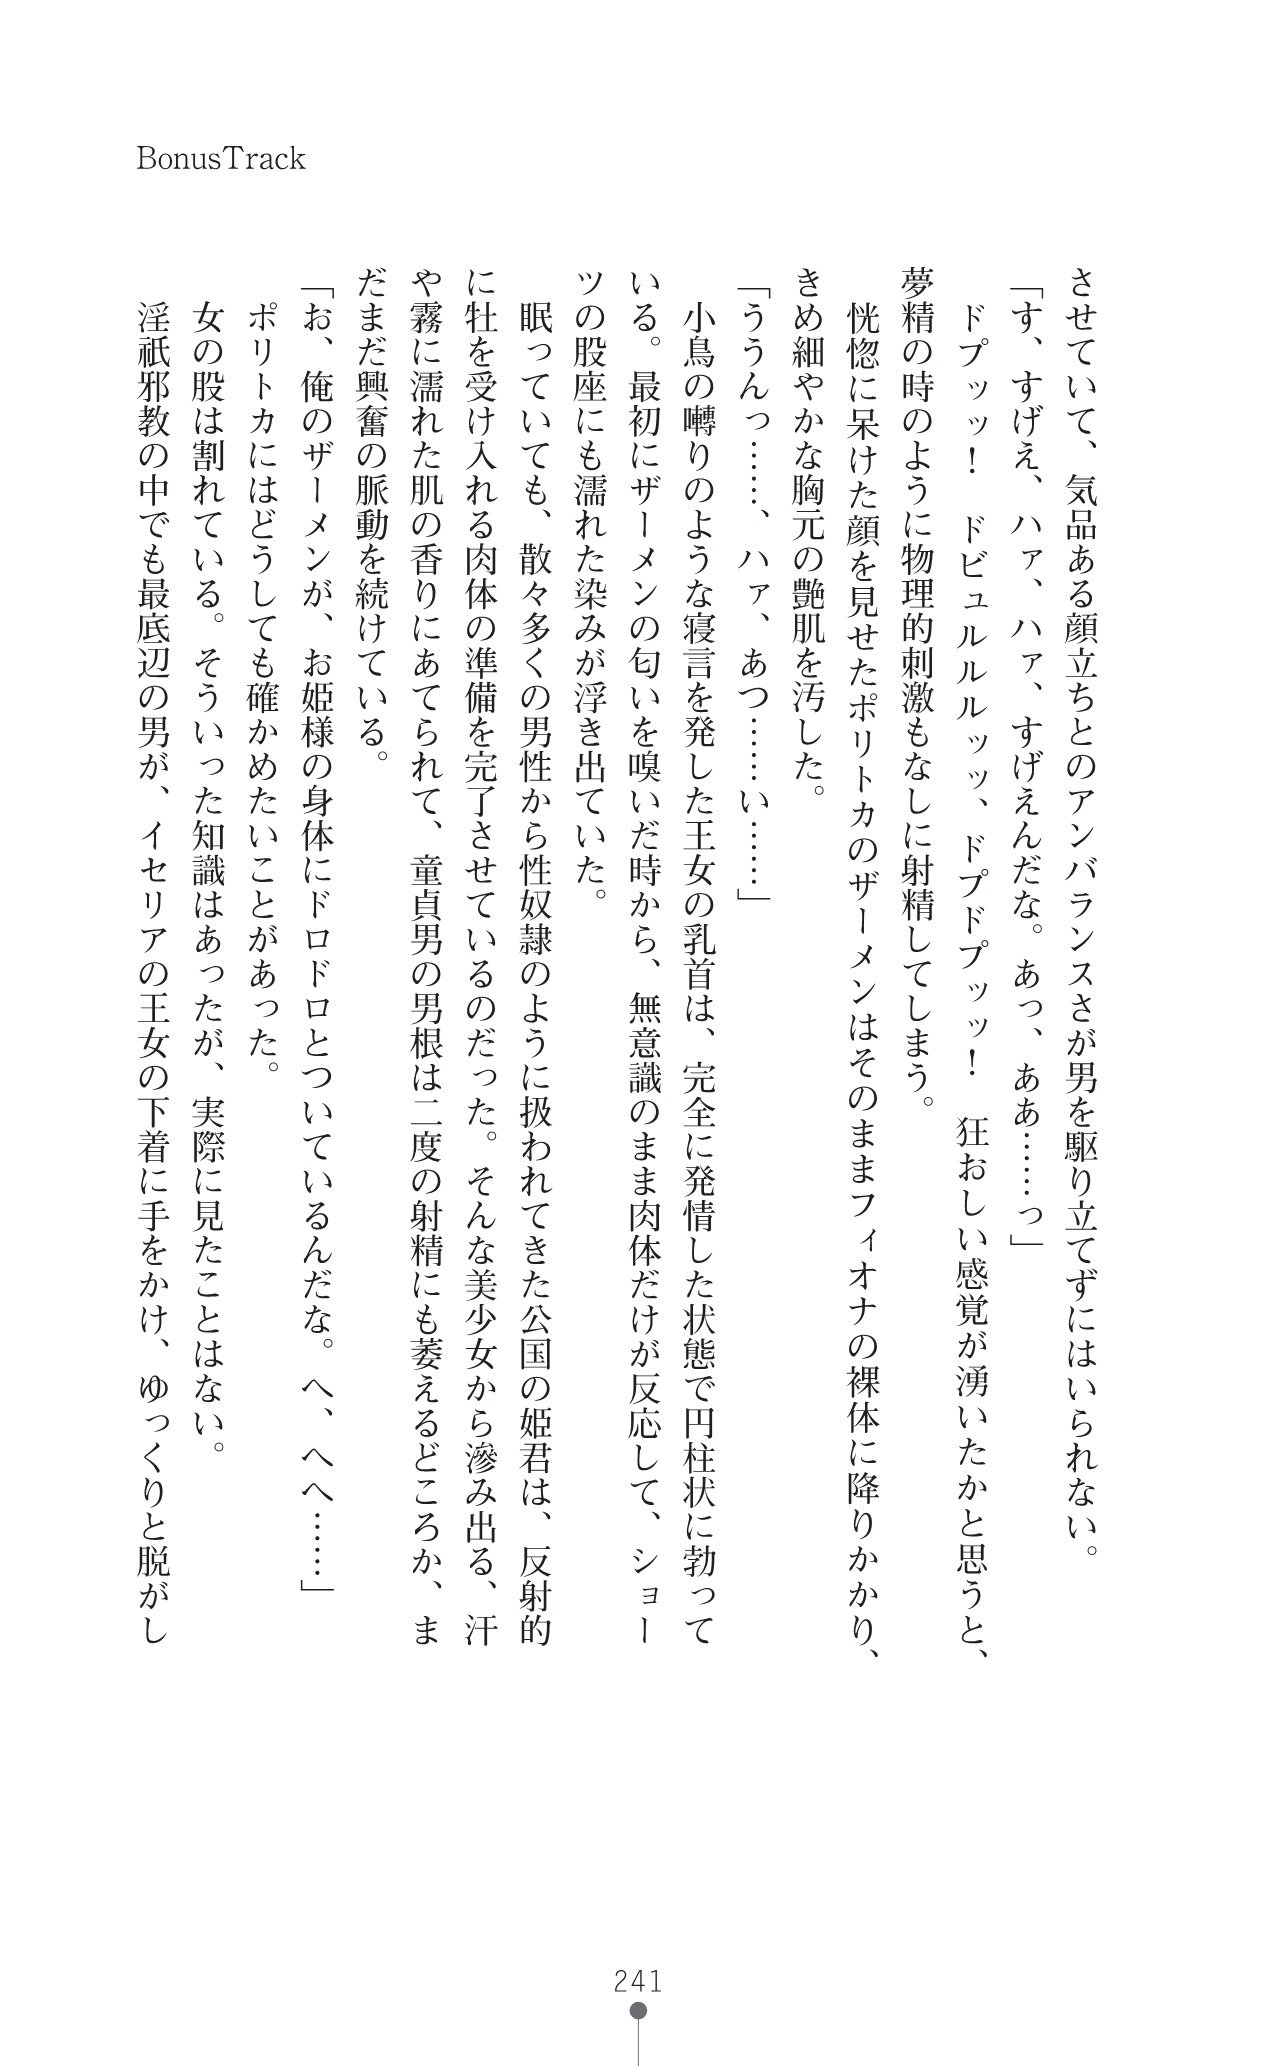 BonusTrack
させていて、気品ある顔立ちとのアンバランスさが男を駆り立てずにはいられない。
「す、すげえ、ハァ、ハァ、すげえんだな。あっ、ああ……っ」
ドプッッ！　ドビュルルルッッ、ドプドプッッ！　狂おしい感覚が湧いたかと思うと、
夢精の時のように物理的刺激もなしに射精してしまう。
恍惚に呆けた顔を見せたポリトカのザーメンはそのままフィオナの裸体に降りかかり、
きめ細やかな胸元の艶肌を汚した。
「ううんっ……、ハァ、あつ……い……」
小鳥の囀りのような寝言を発した王女の乳首は、完全に発情した状態で円柱状に勃って
いる。最初にザーメンの匂いを嗅いだ時から、無意識のまま肉体だけが反応して、ショー
ツの股座にも濡れた染みが浮き出ていた。
眠っていても、散々多くの男性から性奴隷のように扱われてきた公国の姫君は、反射的
に牡を受け入れる肉体の準備を完了させているのだった。そんな美少女から滲み出る、汗
や霧に濡れた肌の香りにあてられて、童貞男の男根は二度の射精にも萎えるどころか、ま
だまだ興奮の脈動を続けている。
「お、俺のザーメンが、お姫様の身体にドロドロとついているんだな。へ、へへ……」
ポリトカにはどうしても確かめたいことがあった。
女の股は割れている。そういった知識はあったが、実際に見たことはない。
淫祇邪教の中でも最底辺の男が、イセリアの王女の下着に手をかけ、ゆっくりと脱がし
241